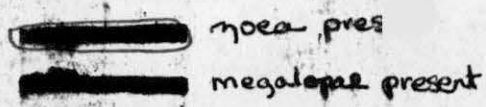 zoea pres
megalopae present